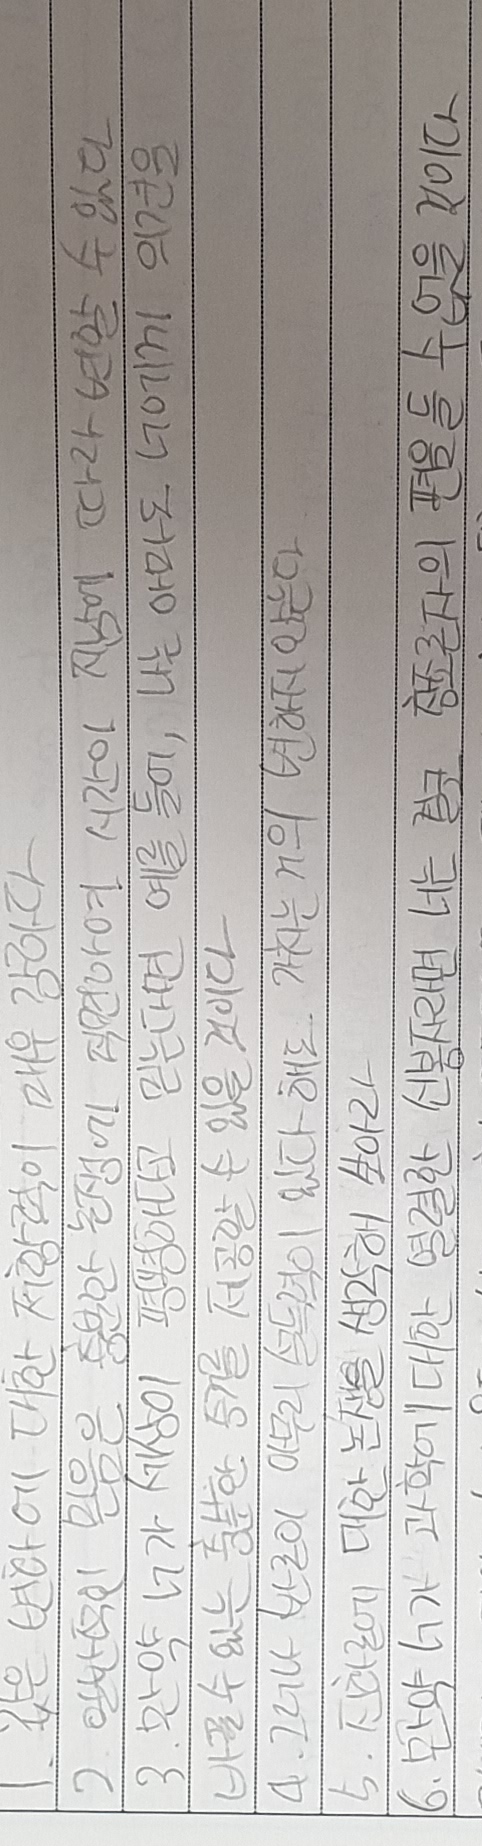 1. 값은 변화에 대한 저항력이 매우 강하다
2. 일반적인 믿음은 충분한 논쟁에 직면하여 시간이 지남에 따라 변할 수 있다
3. 만약 너가 세상이 평평하다고 믿는다면 예를 들어, 나는 아마도 너에게 의견을
바꿀 수 있는 충분한 증거를 제공할 수 있을 것이다
4. 그러나 반론이 아무리 설득력이 있다 해도 가치는 거의 변하지 않는다
5. 진화론에 대한 논쟁을 생각해 보아라
6. 만약 너가 과학에 대한 열렬한 신봉자라면 너는 결코 창조론자의 편을 들 수 없을 것이다